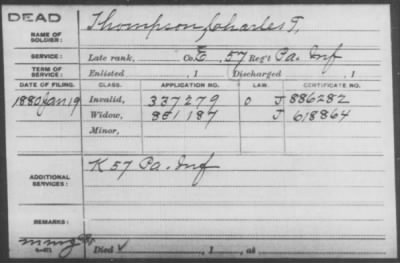 DEAD
NAME OF SOLDIER: Thompson, Charles T.
SERVICE: Late rank, Co. E, 57 Reg't Pa. Inf
TERM OF SERVICE: Enlisted , 1 Discharged , 1
DATE OF FILING. CLASS. APPLICATION NO. LAW. CERTIFICATE NO.
1880 Jan 19 Invalid, 337279 O J 886282
Widow, 851187 J 618864
Minor,
ADDITIONAL SERVICES: K 57 Pa. Inf
REMARKS:
Died , 1 , at